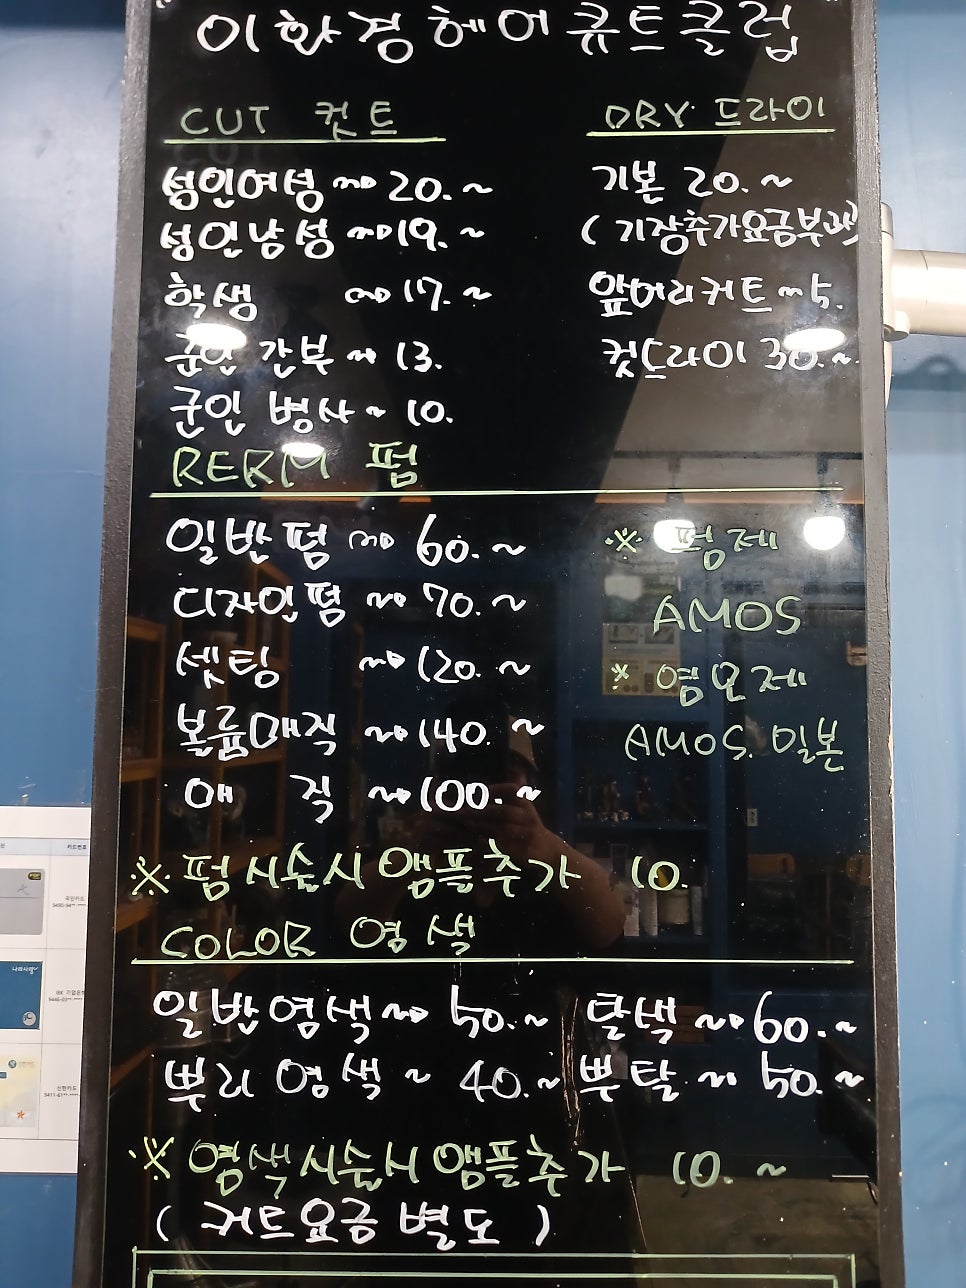 이화경헤어큐트클럽
CUT 컷트
성인여성 ~ 20.~
성인남성 ~ 19.~
학생 ~ 17.~
군인 간부 ~ 13.
군인 병사 ~ 10.
DRY 드라이
기본 20.~
(기장추가요금부과)
앞머리커트 ~ 5.
컷드라이 30.~
RERM 펌
일반펌 ~ 60.~
디자인펌 ~ 70.~
셋팅 ~ 120.~
볼륨매직 ~ 140.~
매 직 ~ 100.~
※ 펌제
AMOS
※ 염모제
AMOS. 일본
※ 펌시술시 앰플추가 10.
COLOR 염색
일반염색 ~ 50.~ 탈색 ~ 60.~
뿌리 염색 ~ 40.~ 뿌탈 ~ 50.~
※ 염색시술시 앰플추가 10.~
(커트요금 별도)
카드번호
국민카드
IBK 기업은행
신한카드
나라사랑